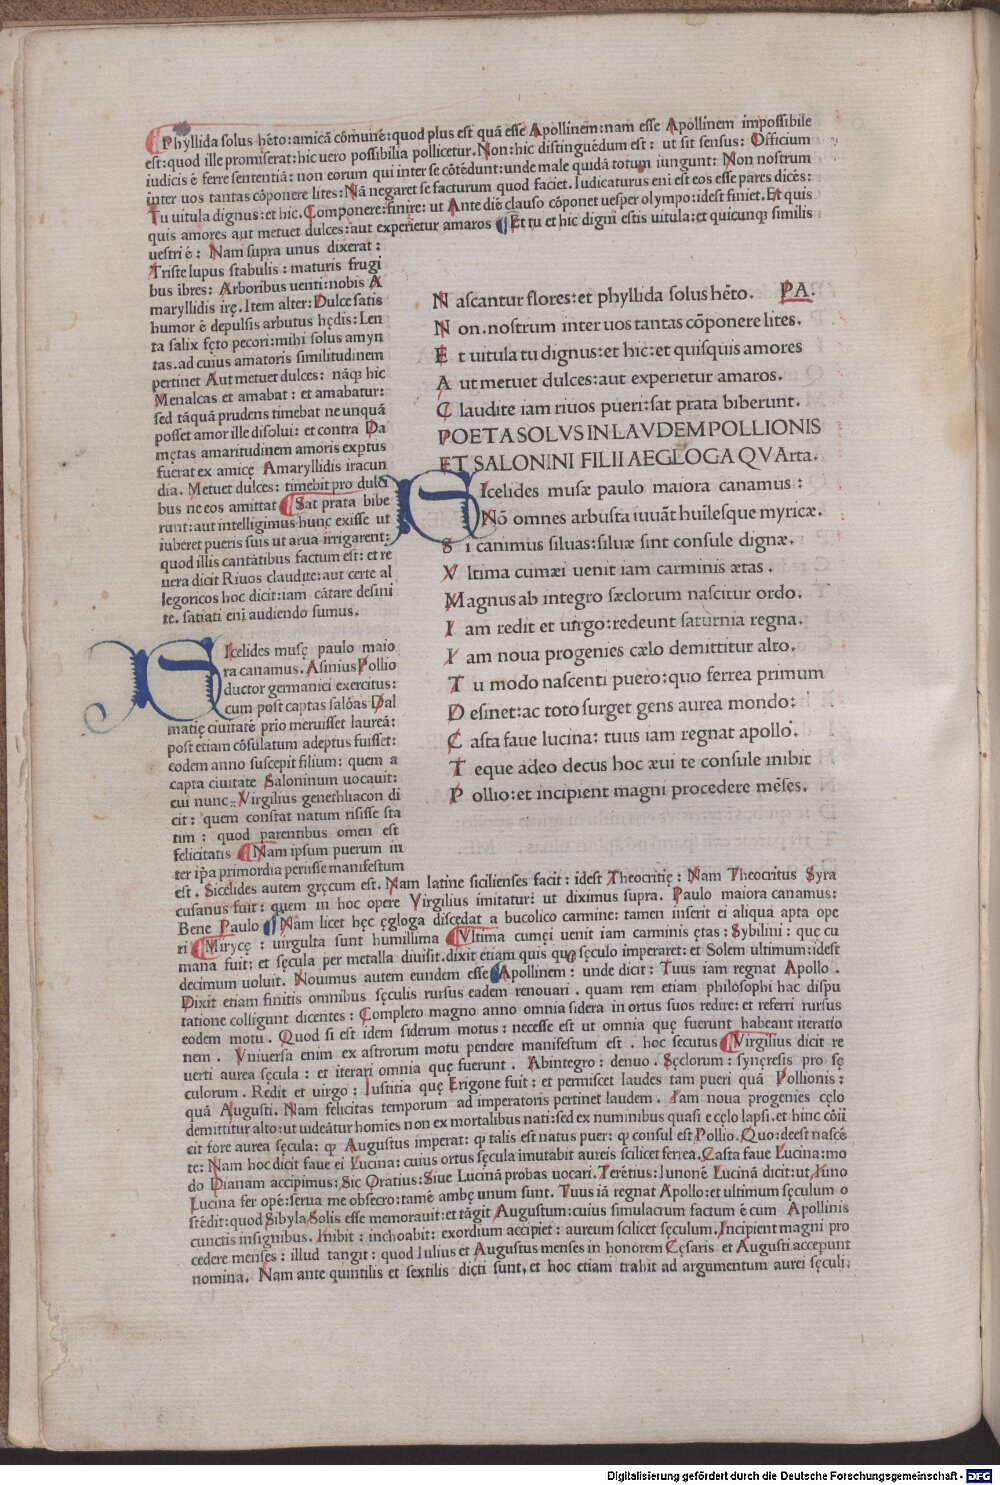 Phyllida solus hẽto:amicã cõmunẽ:quod plus est quã esse Apollinem:nam esse Apollinem impossibile
est:quod ille promiserat:hic uero possibilia pollicetur. Non:hic distinguẽdum est: ut sit sensus: Officium
iudicis ẽ ferre sententiã: non eorum qui inter se cõtẽdunt:unde male quidã totum iungunt: Non nostrum
inter uos tantas cõponere lites: Nã negaret se facturum quod faciet. Iudicaturus eni est eos esse pares dicẽs:
Tu uitula dignus:et hic. Componere:finire: ut Ante diẽ clauso cõponet uesper olympo:idest finiet. Et quis
quis amores aut metuet dulces:aut experietur amaros Et tu et hic digni estis uitula:et quicunq; similis
uestri ẽ: Nam supra unus dixerat:
Triste lupus stabulis: maturis frugi
bus ĩbres: Arboribus uenti:nobis A
maryllidis irę. Item alter: Dulce satis
humor ẽ depulsis arbutus hędis: Len
ta salix fęto pecori:mihi solus amyn
tas. ad cuius amatoris similitudinem
pertinet Aut metuet dulces: nãq; hic
Menalcas et amabat: et amabatur:
sed tãquã prudens timebat ne unquã
posset amor ille disolui: et contra Da
mętas amaritudinem amoris exptus
fuerat ex amicę Amaryllidis iracun
dia. Metuet dulces: timebit pro dulci
bus ne eos amittat Sat prata bibe
runt:aut intelligimus hunc exisse ut
iuberet pueris suis ut arua irrigarent:
quod illis cantãtibus factum est: et re
uera dicit Riuos claudite:aut certe al
legoricos hoc dicit:iam cãtare desini
te. satiati enĩ audiendo sumus.
Sicelides musę paulo maio
ra canamus. Asinius Pollio
ductor germanici exercitus:
cum post captas salõas Dal
matię ciuitatẽ prio meruisset laureã:
post etiam cõsulatum adeptus fuisset:
eodem anno suscepit filium: quem a
capta ciuitate Saloninum uocauit:
cui nunc.. Virgilius genethliacon di
cit: quem constat natum risisse sta
tim: quod parentibus omen est
felicitatis Nam ipsum puerum in
ter ip̃a primordia periisse manifestum
est. Sicelides autem gręcum est. Nam latine sicilienses facit: idest Theocritię: Nam Theocritus Syra
cusanus fuit: quem in hoc opere Virgilius imitatur: ut diximus supra. Paulo maiora canamus:
Bene Paulo Nam licet hęc ęgloga discedat a bucolico carmine: tamen inserit ei aliqua apta ope
ri Miryce: uirgulta sunt humillima Vltima cumęi uenit iam carminis ętas: Sybilini: quę cu
mana fuit: et sęcula per metalla diuisit.dixit etiam quis quo sęculo imperaret: et Solem ultimum:idest
decimum uoluit. Nouimus autem eundem esse Apollinem: unde dicit: Tuus iam regnat Apollo.
Dixit etiam finitis omnibus sęculis rursus eadem renouari. quam rem etiam philosophi hac dispu
tatione colligunt dicentes: Completo magno anno omnia sidera in ortus suos redire: et referri rursus
eodem motu. Quod si est idem siderum motus: necesse est ut omnia quę fuerunt habeant iteratio
nem. Vniuersa enim ex astrorum motu pendere manifestum est. hoc secutus Virgilius dicit re
uerti aurea sęcula: et iterari omnia quę fuerunt. Abintegro: denuo. Sęclorum: synęresis pro sę
culorum. Redit et uirgo: Iustitia quę Erigone fuit: et permiscet laudes tam pueri quã Pollionis:
quã Augusti. Nam felicitas temporum ad imperatoris pertinet laudem. Iam noua progenies cęlo
demittitur alto:ut uideãtur homies non ex mortalibus nati:sed ex numinibus quasi e cęlo lapsi.et hinc cõii
cit fore aurea sęcula: q̃ Augustus imperat: q̃ talis est natus puer: q̃ consul est Pollio. Quo:deest nascẽ
te: Nam hoc dicit faue ei Lucina: cuius ortus sęcula imutabit aureis scilicet ferrea. Casta faue Lucina:mo
do Dianam accipimus: Sic Oratius: Siue Lucinã probas uocari. Terẽtius: Iunonẽ Lucinã dicit:ut Iuno
Lucina fer opẽ:serua me obsecro:tamẽ ambę unum sunt. Tuus iã regnat Apollo:et ultimum sęculum o
stẽdit:quod Sibyla Solis esse memorauit:et tãgit Augustum:cuius simulacrum factum ẽ cum Apollinis
cunctis insignibus. Inibit: inchoabit: exordium accipiet: aureum scilicet sęculum. Incipient magni pro
cedere menses: illud tangit: quod Iulius et Augustus menses in honorem Cęsaris et Augusti accepunt
nomina. Nam ante quintilis et sextilis dicti sunt, et hoc etiam trahit ad argumentum aurei sęculi.
N ascantur flores:et phyllida solus hẽto. PA.
N on.nostrum inter uos tantas cõponere lites.
E t uitula tu dignus:et hic:et quisquis amores
A ut metuet dulces:aut experietur amaros.
C laudite iam riuos pueri:sat prata biberunt.
POETA SOLVS IN LAVDEM POLLIONIS
ET SALONINI FILII AEGLOGA QVArta.
SIcelides musæ paulo maiora canamus:
Nõ omnes arbusta iuuãt huĩlesque myricæ.
S i canimus siluas:siluæ sint consule dignæ.
V ltima cumæi uenit iam carminis ætas.
Magnus ab integro sæclorum nascitur ordo.
I am redit et uirgo:redeunt saturnia regna.
I am noua progenies cælo demittitur alto.
T u modo nascenti puero:quo ferrea primum
D esinet:ac toto surget gens aurea mondo:
C asta faue lucina: tuus iam regnat apollo.
T eque adeo decus hoc æui te consule inibit
P ollio:et incipient magni procedere mẽses.
Digitalisierung gefördert durch die Deutsche Forschungsgemeinschaft - DFG